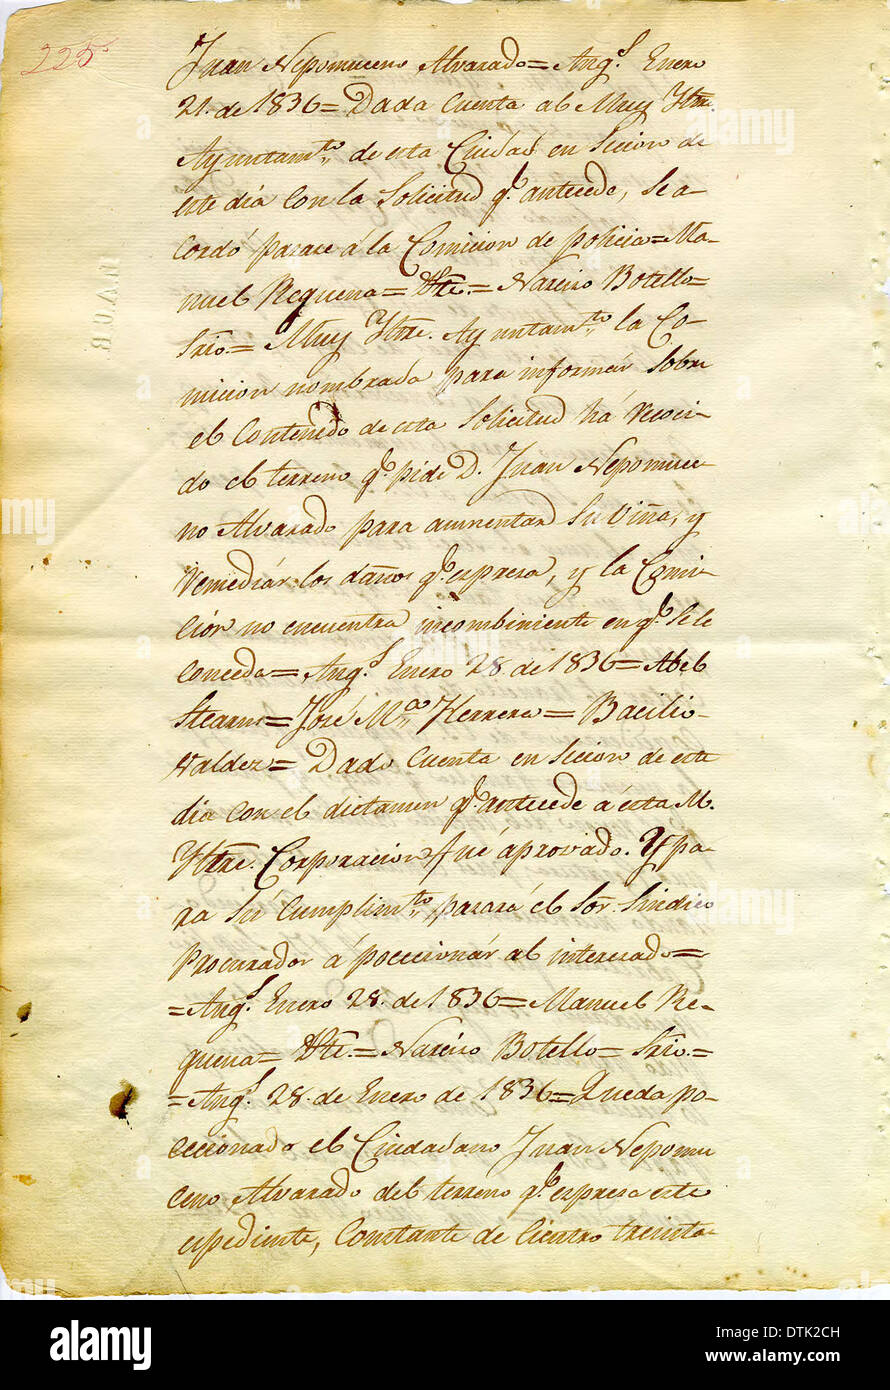 225
Juan Nepomuceno Alvarado = Ang.s Enero
21. de 1836 = Dada Cuenta al Muy Yltre.
Ayuntam.to de esta Ciudad en Sicion de
este dia con la Solicitud q.e antecede, Se a-
cordó pasace á la Comicion de policia = Ma-
nuel Requena = Pte. = Narciso Botello =
Srio. = Muy Yltre. Ayuntam.to la Co-
micion nombrada para informár Sobre
el Contenido de esta Solicitud há recoci-
do el terreno q.e pide D. Juan Nepomuce-
no Alvarado para aumentar Su Viña, y
remediár los daños q.e espresa, y la Comi-
ción no encuentra incombiniente en q.e Se le
conceda = Ang.s Enero 28. de 1836 = Abel
Stearns = José M.a Herrera = Bacilio
Valdez = Dado Cuenta en Sicion de este
dia con el dictamen q.e antecede á esta M.
Yltre. Corporacion fué áprovado. Y pa-
ra Sú Cumplim.to pasará el Sor. Sindico
Procurador á poccecionár al interesado =
= Ang.s Enero 28. de 1836 = Manuel Re-
quena = Pte. = Narciso Botello = Srio. =
= Ang.s 28. de Enero de 1836 = Queda po-
ceccionado el Ciudadano Juan Nepomu
ceno Alvarado del terreno q.e espresa este
espediente, Constante de Ciento treinta
M.A.C.B.
alamy
a
DTK2CH
www.alamy.com